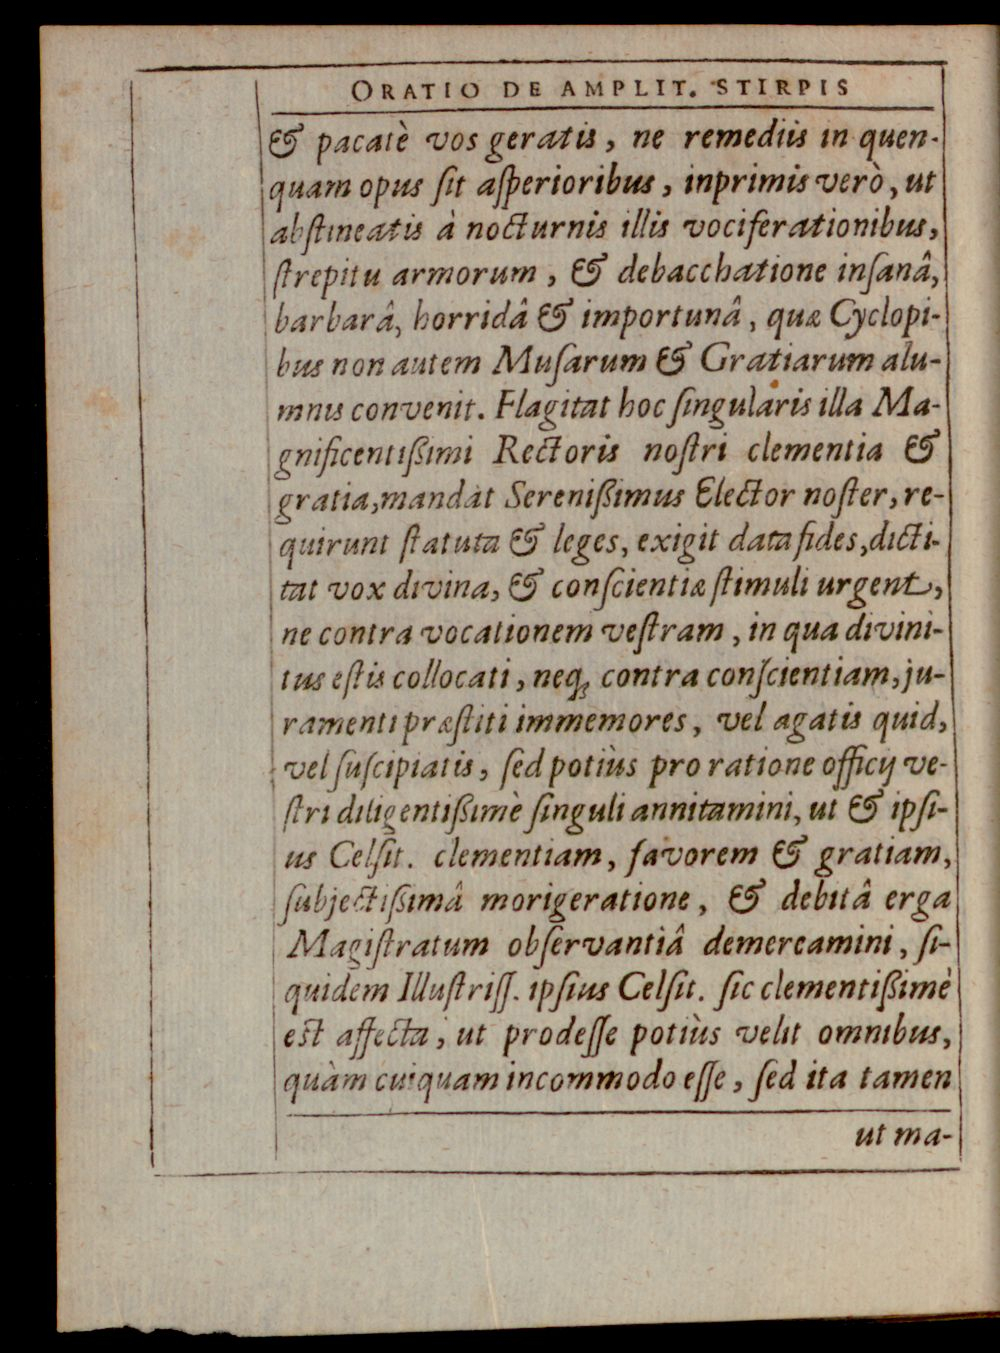 ORATIO DE AMPLIT. STIRPIS
& pacatè vos geratis, ne remediis in quen-
quam opus ſit aſperioribus, inprimis verò, ut
abſtineatis à nocturnis illis vociferationibus,
ſtrepitu armorum, & debacchatione inſanâ,
barbarâ, horridâ & importunâ, quæ Cyclopi-
bus non autem Muſarum & Gratiarum alu-
mnis convenit. Flagitat hoc ſingularis illa Ma-
gnificentißimi Rectoris noſtri clementia &
gratia, mandat Serenißimus Elector noſter, re-
quirunt ſtatuta & leges, exigit data fides, dicti-
tat vox divina, & conſcientiæ ſtimuli urgent,
ne contra vocationem veſtram, in qua divini-
tus eſtis collocati, neq; contra conſcientiam, ju-
ramenti præſtiti immemores, vel agatis quid,
vel ſuſcipiatis, ſed potiùs pro ratione officij ve-
ſtri diligentißimè ſinguli annitamini, ut & ipſi-
us Celſit. clementiam, favorem & gratiam,
ſubjectißimâ morigeratione, & debitâ erga
Magiſtratum obſervantiâ demereamini, ſi-
quidem Illuſtriſſ. ipſius Celſit. ſic clementißimè
eſt affecta, ut prodeſſe potiùs velit omnibus,
quàm cuiquam incommodo eſſe, ſed ita tamen
ut ma-